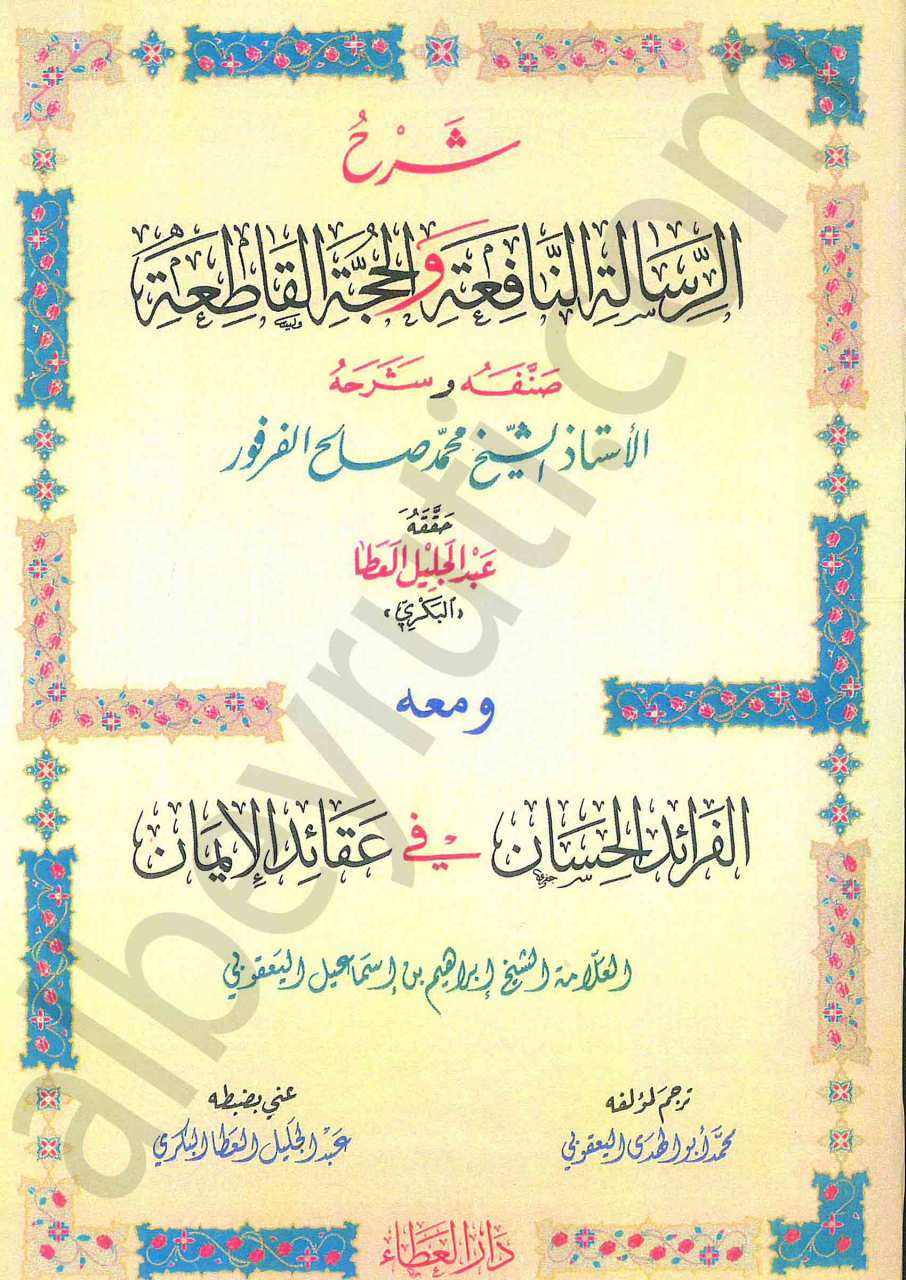 شَرْحُ
الرِّسَالَةِ النَّافِعَةِ وَالحُجَّةِ القَاطِعَةِ
صَنَّفَهُ وشَرَحَهُ
الأستاذ الشيخ محمّد صالح الفرفور
حَقَّقَهُ
عَبْدُ الجَلِيْل العَطَا
«البَكْرِيّ»
ومعه
الفَرَائد الحِسَان في عَقَائِد الإِيمَان
العلّامة الشيخ إبراهيم بن إسماعيل اليعقوبي
ترجم لمؤلفه
محمّد أبو الهدى اليعقوبي
عني بضبطه
عَبْد الجَليْل العَطا البكري
دَارُ العَطَاء
albeyruti.com